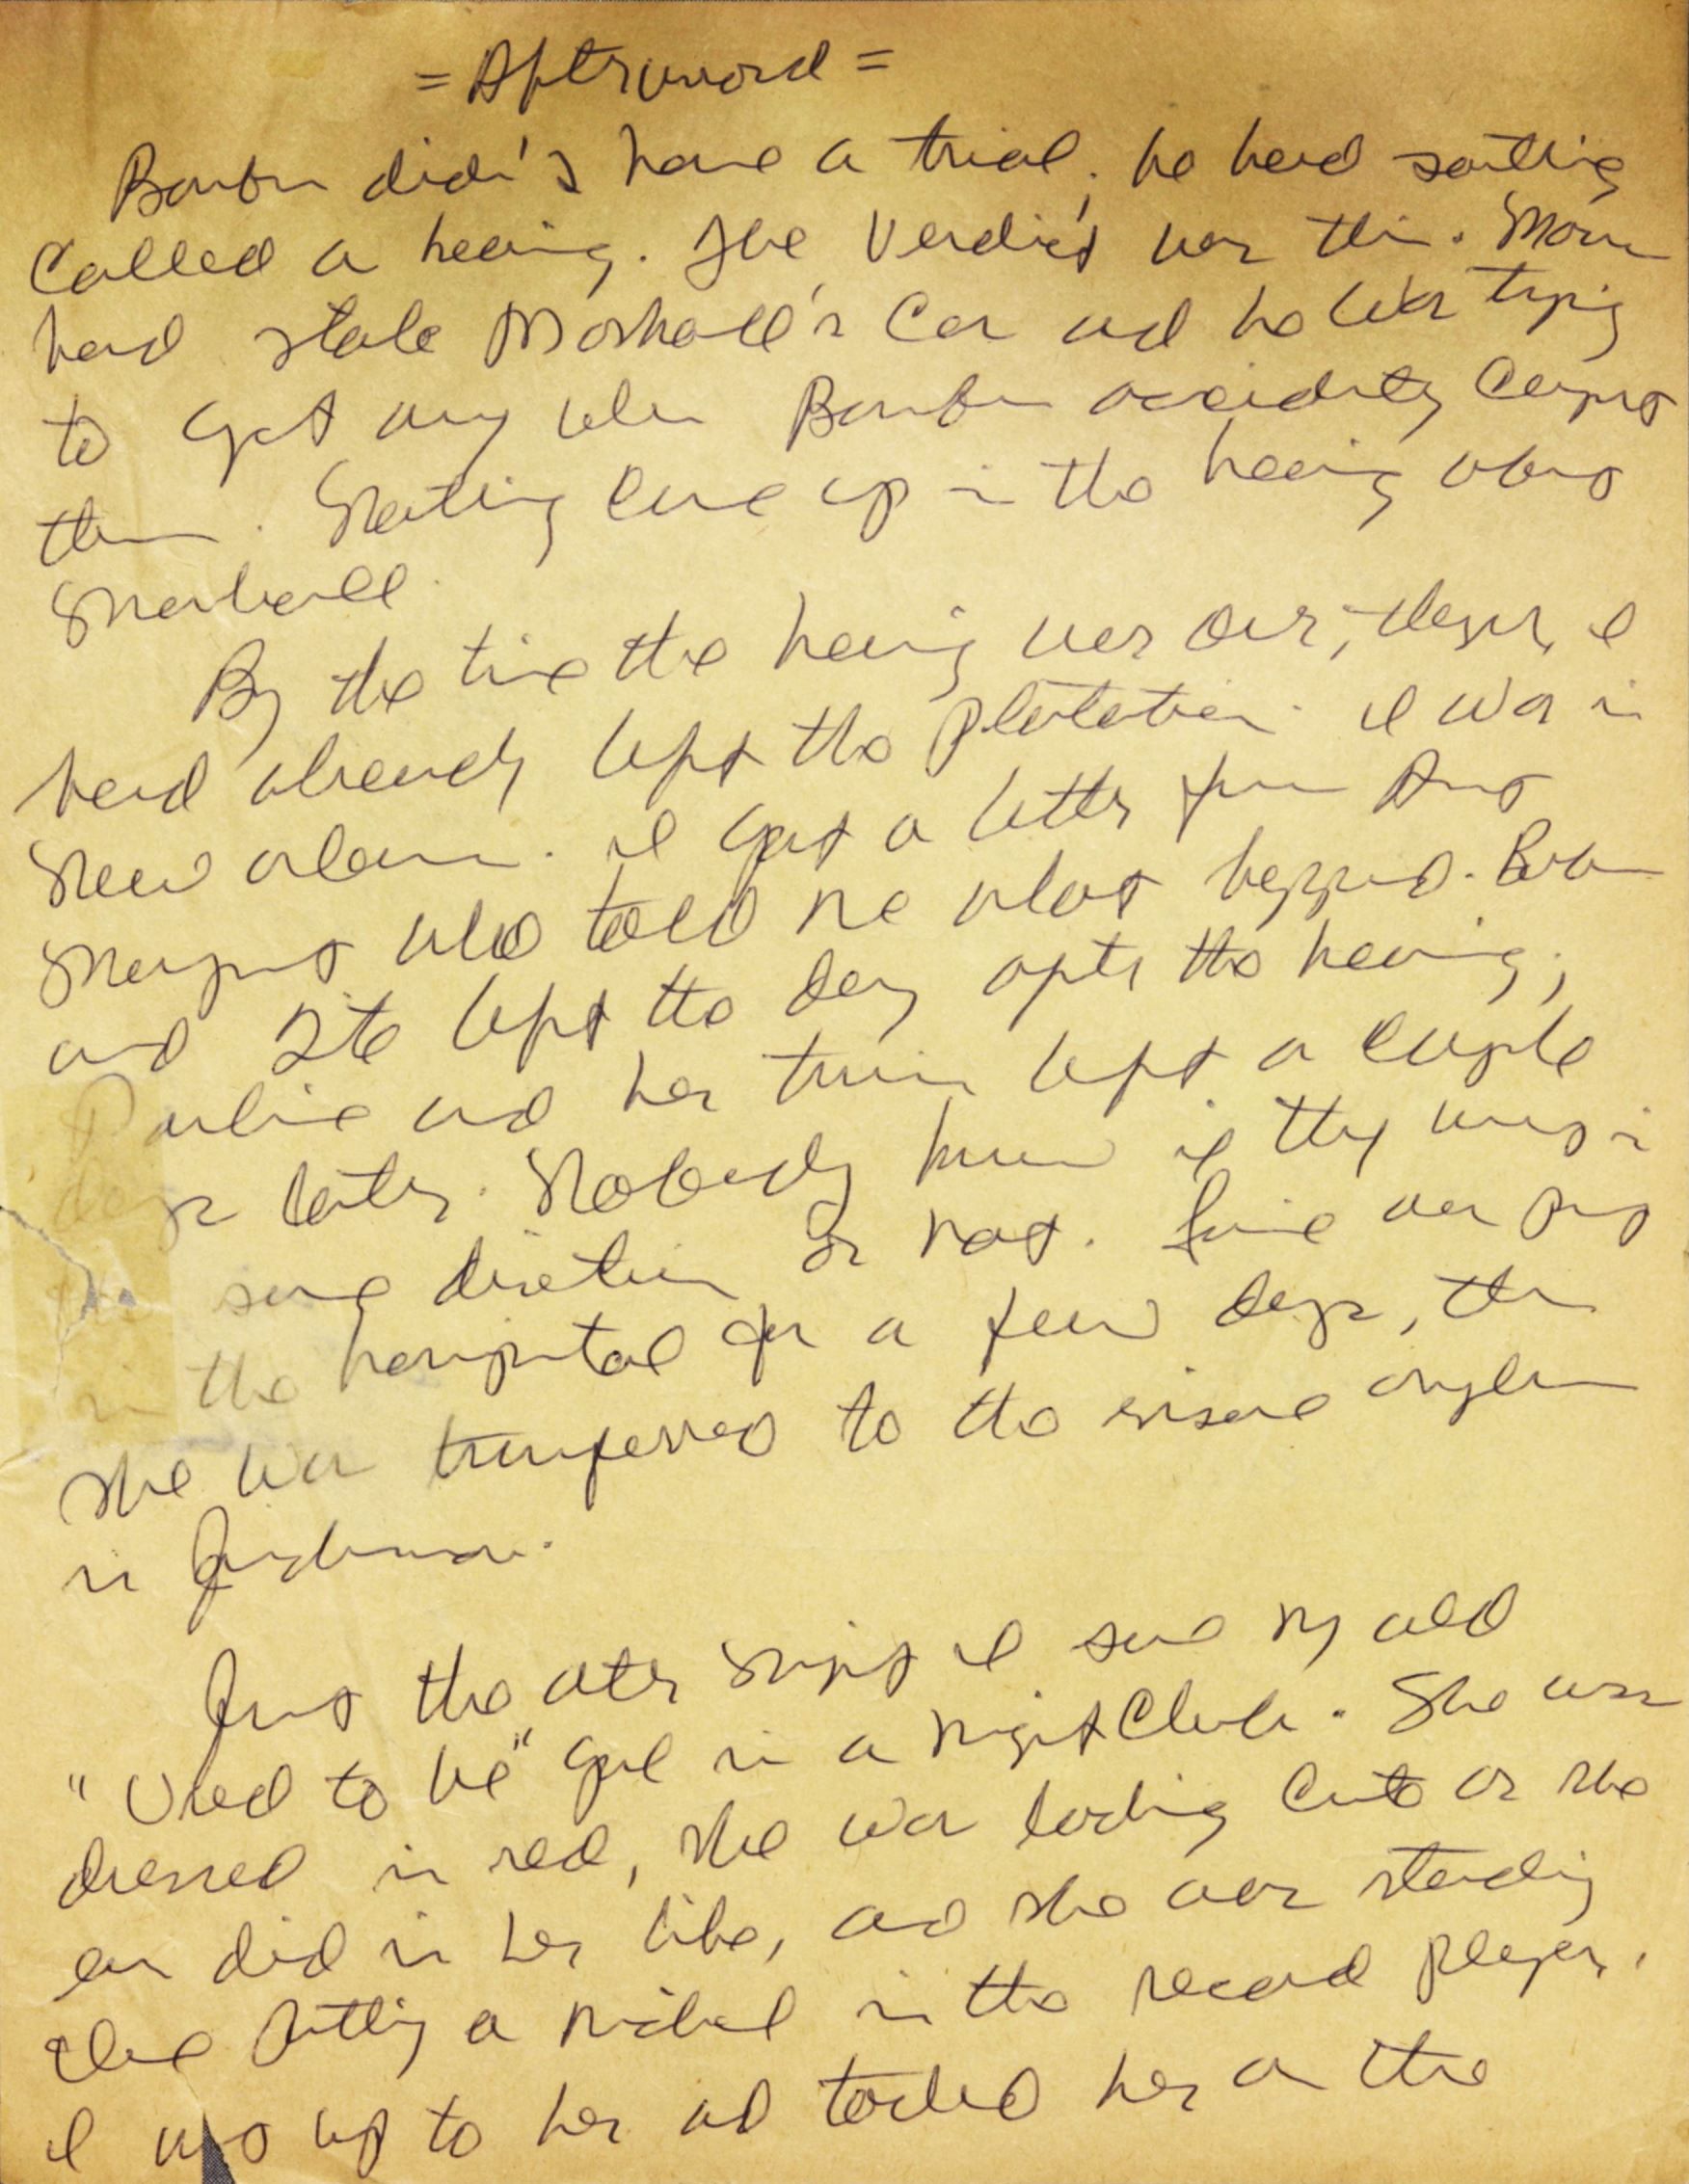 = Afterword =
Bonbon didn't have a trial; he had something
called a hearing. The verdict was this. Marcus
had stole Marshall's car and he was trying
to get away when Bonbon accidently caught
them. Nothing came up in the hearing about
Marshall.
By the time the hearing was over, though, I
had already left the plantation. I was in
New Orleans. I got a letter from Aunt
Margaret who told me what happened. Bonbon
and Tite left the day after the hearing;
Pauline and her twins left a couple
days later. Nobody knew if they went in
the same direction or not. Louise was put
in the hospital for a few days, then
she was transferred to the insane asylum
in Jackson.
Just the other night I saw my old
"Used to be" gal in a nightclub. She was
dressed in red, she was looking cute as she
ever did in her life, and she was standing
there putting a nickel in the record player.
I went up to her and touched her on the